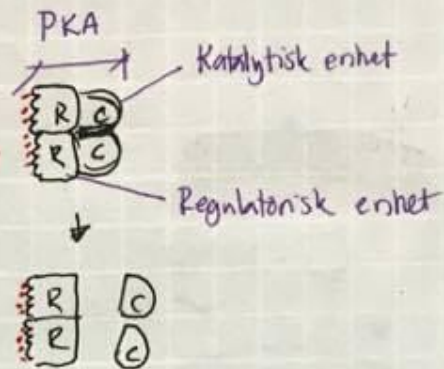 PKA
Katalytisk enhet
R C
R C
Regulatorisk enhet
R C
R C